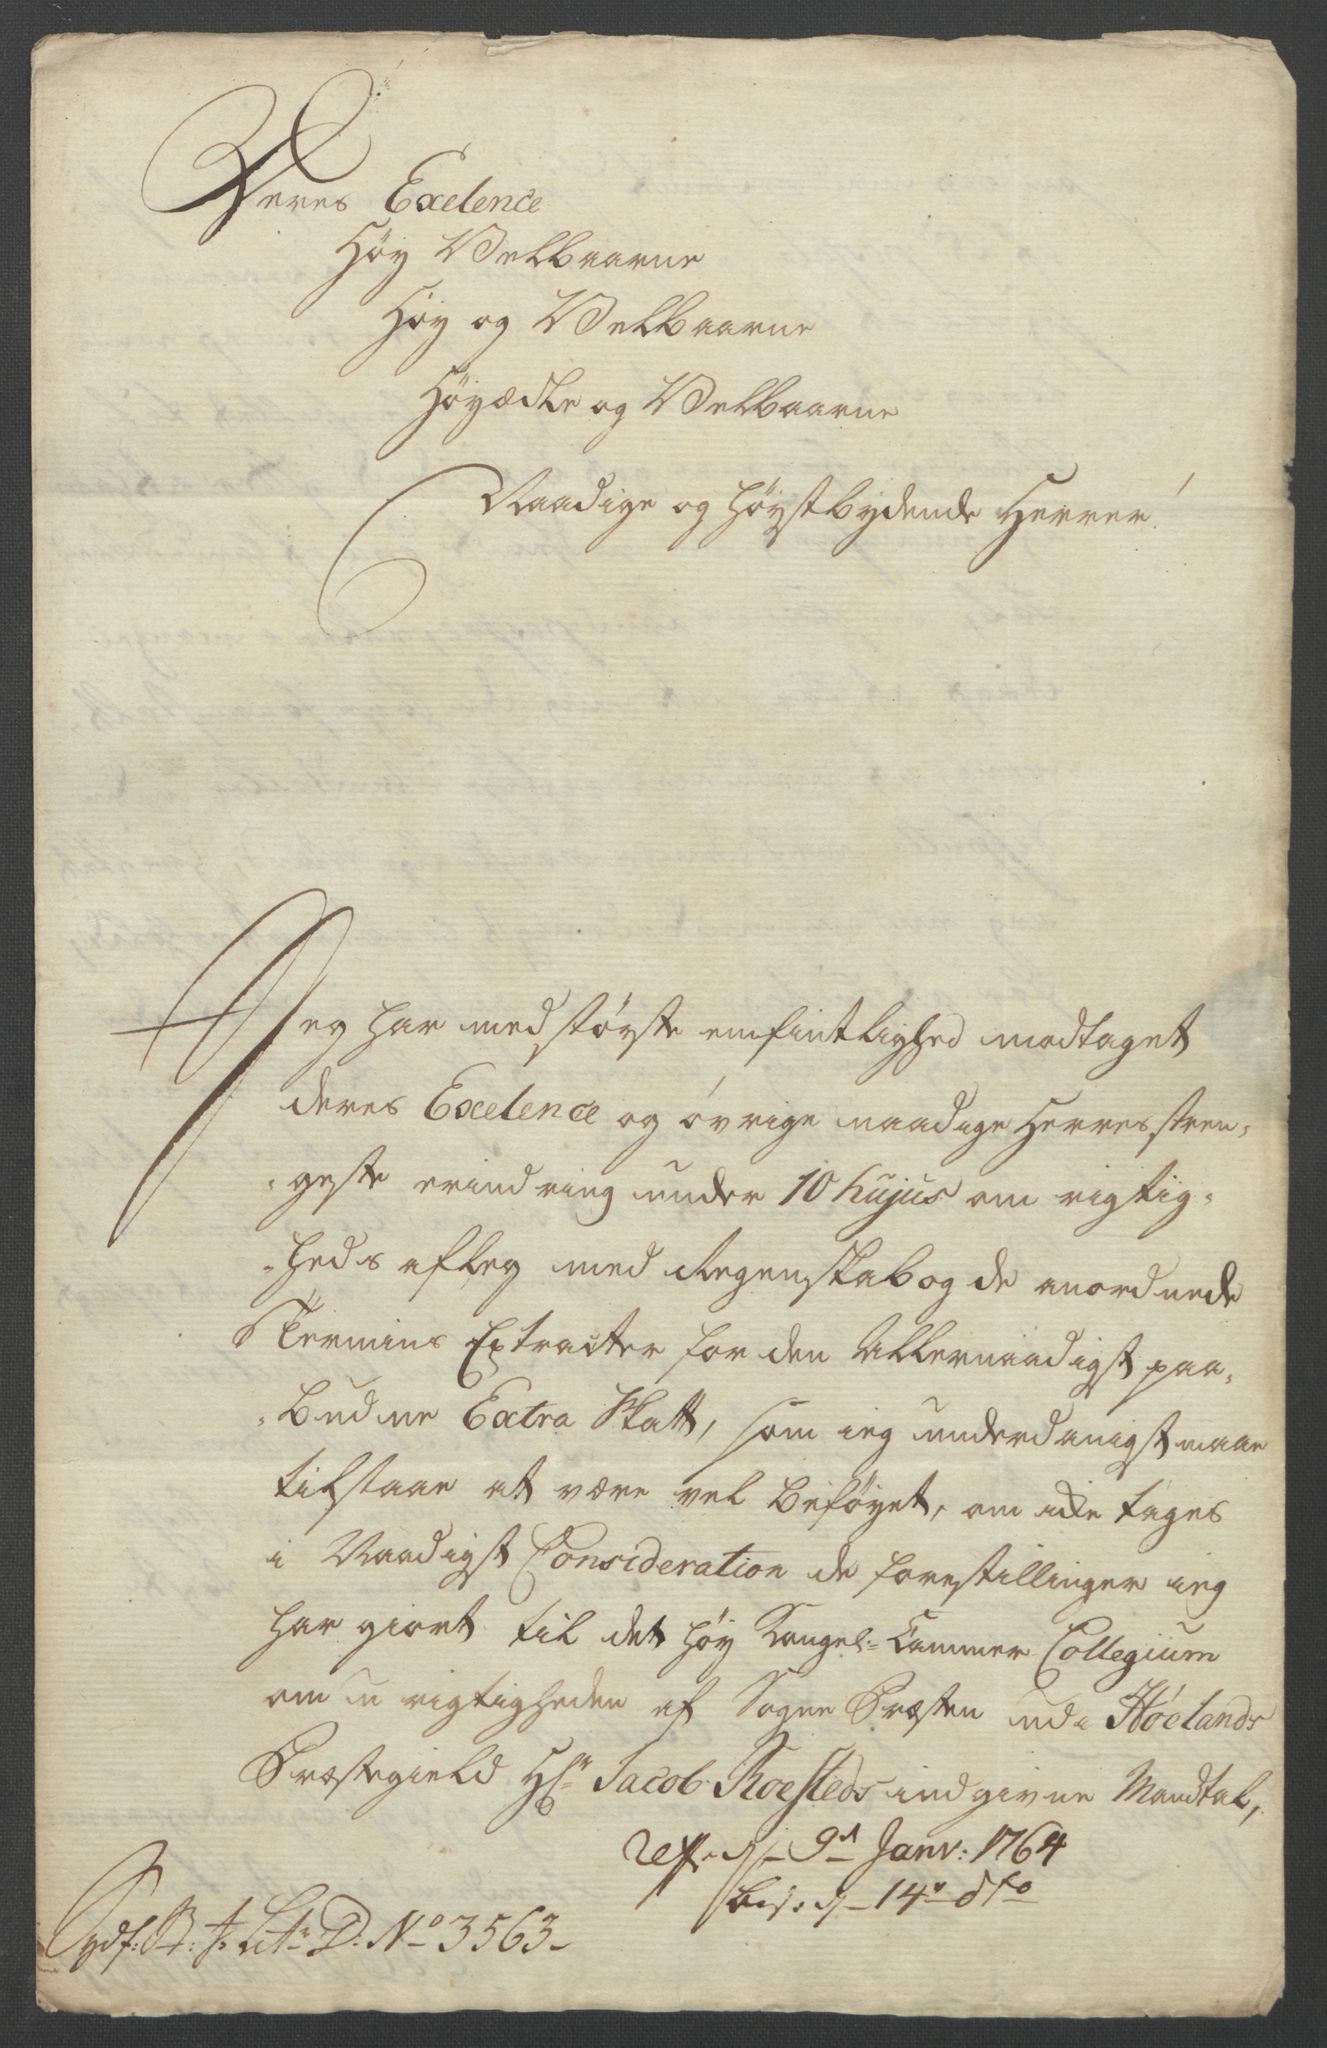 Deres Excelence
Høy Velbaarne
Høy og Velbaarne
Høyædle og Velbaarne
Naadige og Høystbydende Herrer!
Jeg har med største emfintlighed modtaget
deres Excelence og øvrige naadige Herres stren-
-geste erindring under 10 hujus om rigtig-
-heds aflæg med Regenskab og de anordnede
Termins Extracter for den Allernaadigst paa-
-budne Extra Skatt, som ieg underdanigst maae
tilstaae at være vel beføyet, om icke tages
i Naadigst Consideration de forestillinger ieg
har giort til det høy Kongel: Cammer Collegium
om u rigtigheden af Sogne Præsten udi Høelands
Præstegield Hr Jacob Roesteds indgivne Mandtal,
d 9d Janv: 1764
d 14 dto
Litr D. No 3563